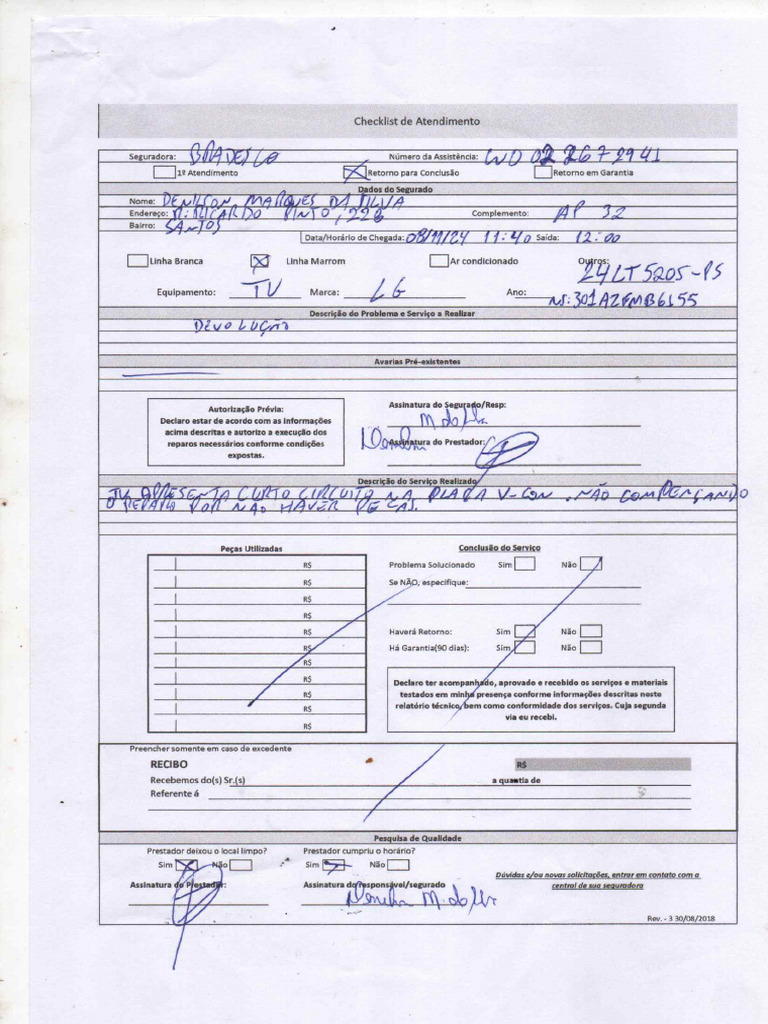 Checklist de Atendimento
Seguradora: BRADESCO Número da Assistência: WD 02 267 2941
1º Atendimento Retorno para Conclusão Retorno em Garantia
Dados do Segurado
Nome: DENILSON MARQUES DA SILVA
Endereço: R: RICARDO PINTO, 226 Complemento: AP 32
Bairro: SANTOS
Data/Horário de Chegada: 08/11/24 11:40 Saída: 12:00
Linha Branca Linha Marrom Ar condicionado Outros: 24LT520S-PS
Equipamento: TV Marca: LG Ano: NS: 301AZFMB6155
Descrição do Problema e Serviço a Realizar
DEVOLUÇÃO
Avarias Pré-existentes
Autorização Prévia:
Declaro estar de acordo com as informações
acima descritas e autorizo a execução dos
reparos necessários conforme condições
expostas.
Assinatura do Segurado/Resp:
Assinatura do Prestador:
Descrição do Serviço Realizado
TV APRESENTA CURTO CIRCUITO NA PLACA V-CON. NÃO COMPENÇANDO
O REPARO POR NÃO HAVER PEÇAS.
Peças Utilizadas
R$
R$
R$
R$
R$
R$
R$
R$
R$
R$
R$
Conclusão do Serviço
Problema Solucionado Sim Não
Se NÃO, especifique:
Haverá Retorno: Sim Não
Há Garantia(90 dias): Sim Não
Declaro ter acompanhado, aprovado e recebido os serviços e materiais
testados em minha presença conforme informações descritas neste
relatório técnico, bem como conformidade dos serviços. Cuja segunda
via eu recebi.
Preencher somente em caso de excedente
RECIBO R$
Recebemos do(s) Sr.(s) a quantia de
Referente á
Pesquisa de Qualidade
Prestador deixou o local limpo? Prestador cumpriu o horário?
Sim Não Sim Não
Dúvidas e/ou novas solicitações, entrar em contato com a
central de sua seguradora
Assinatura do Prestador: Assinatura do responsável/segurado
Rev. - 3 30/08/2018